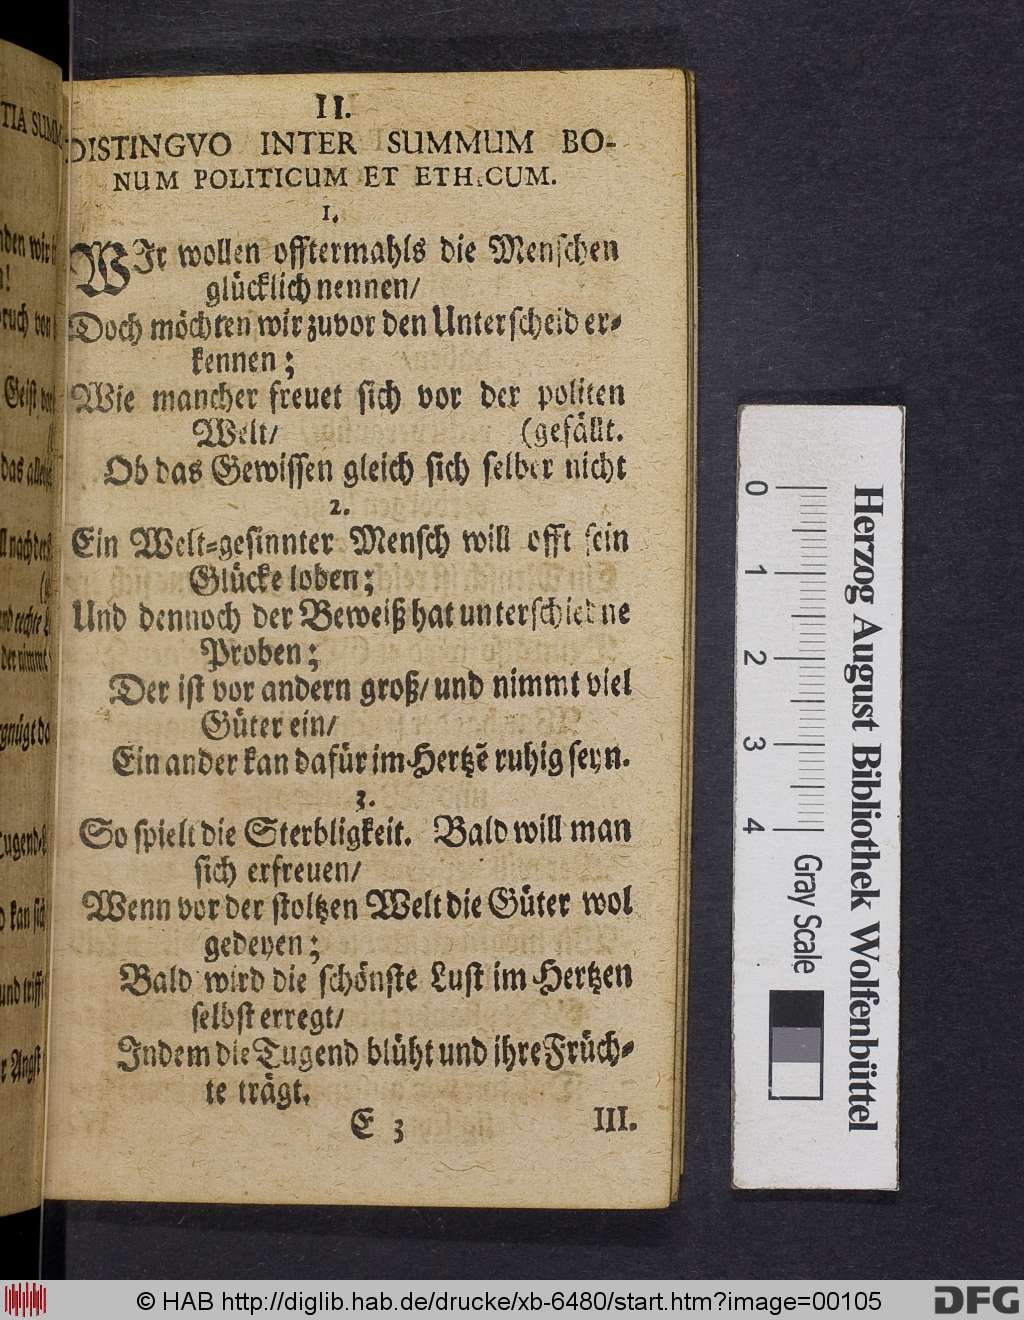 II.
DISTINGVO INTER SUMMUM BO-
NUM POLITICUM ET ETHICUM.
1.
WIr wollen offtermahls die Menschen
glücklich nennen/
Doch möchten wir zuvor den Unterscheid er-
kennen;
Wie mancher freuet sich vor der politen
Welt/ (gefällt.
Ob das Gewissen gleich sich selber nicht
2.
Ein Welt-gesinnter Mensch will offt sein
Glücke loben;
Und dennoch der Beweiß hat unterschiedne
Proben;
Der ist vor andern groß/ und nimmt viel
Güter ein/
Ein ander kan dafür im Hertzẽ ruhig seyn.
3.
So spielt die Sterbligkeit. Bald will man
sich erfreuen/
Wenn vor der stoltzen Welt die Güter wol
gedeyen;
Bald wird die schönste Lust im Hertzen
selbst erregt/
Indem die Tugend blüht und ihre Früch-
te trägt.
E 3 III.
TIA SUMM
nden wir
ruch von
Geist
das allein
der nimmt
und triff
r Angst
0 1 2 3 4
Gray Scale
Herzog August Bibliothek Wolfenbüttel
© HAB http://diglib.hab.de/drucke/xb-6480/start.htm?image=00105
DFG